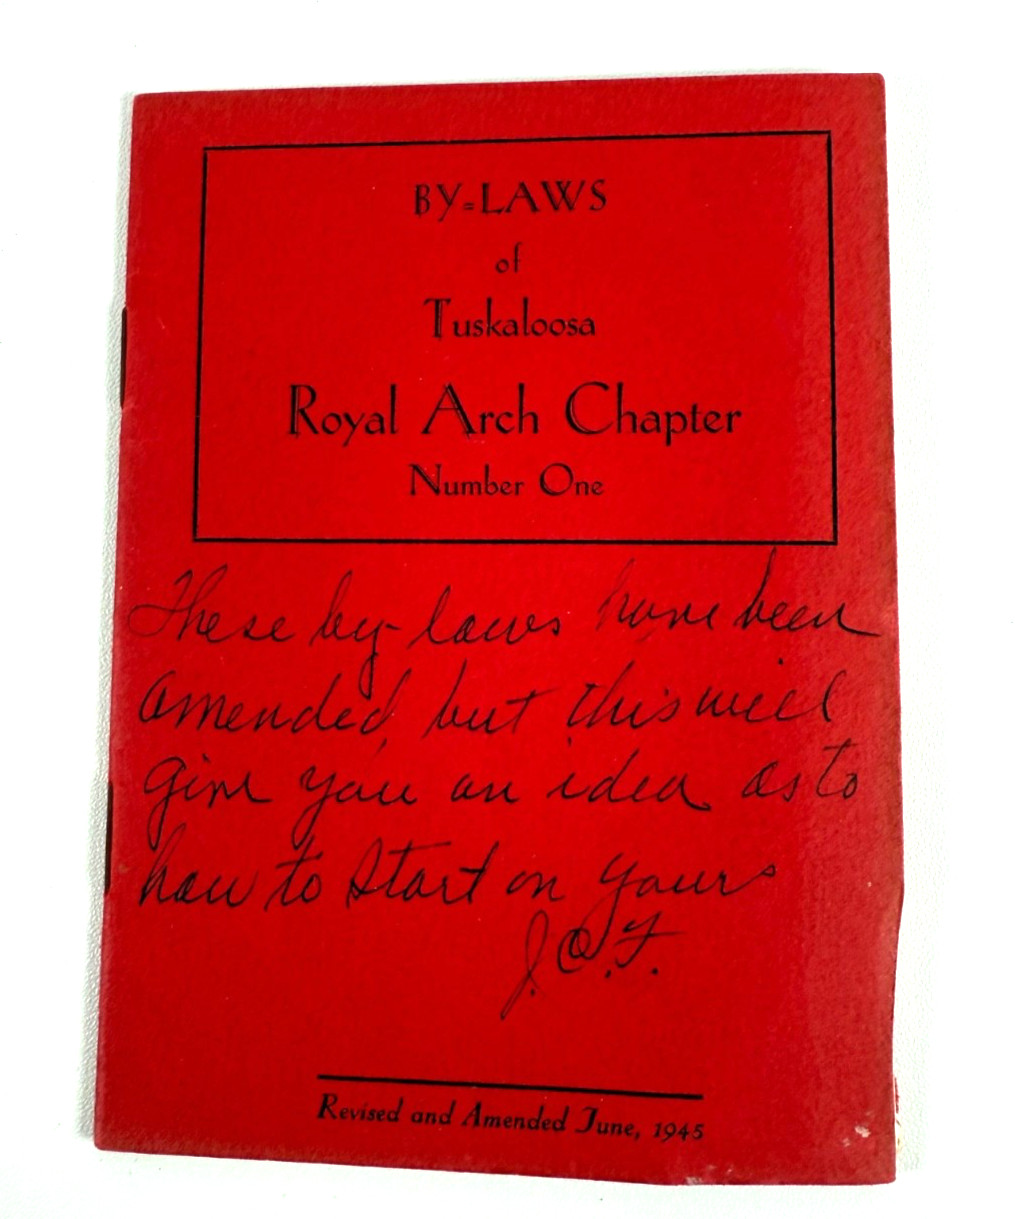 BY=LAWS
of
Tuskaloosa
Royal Arch Chapter
Number One
These by-laws have been
amended, but this will
give you an idea as to
how to start on yours
J.O.F.
Revised and Amended June, 1945